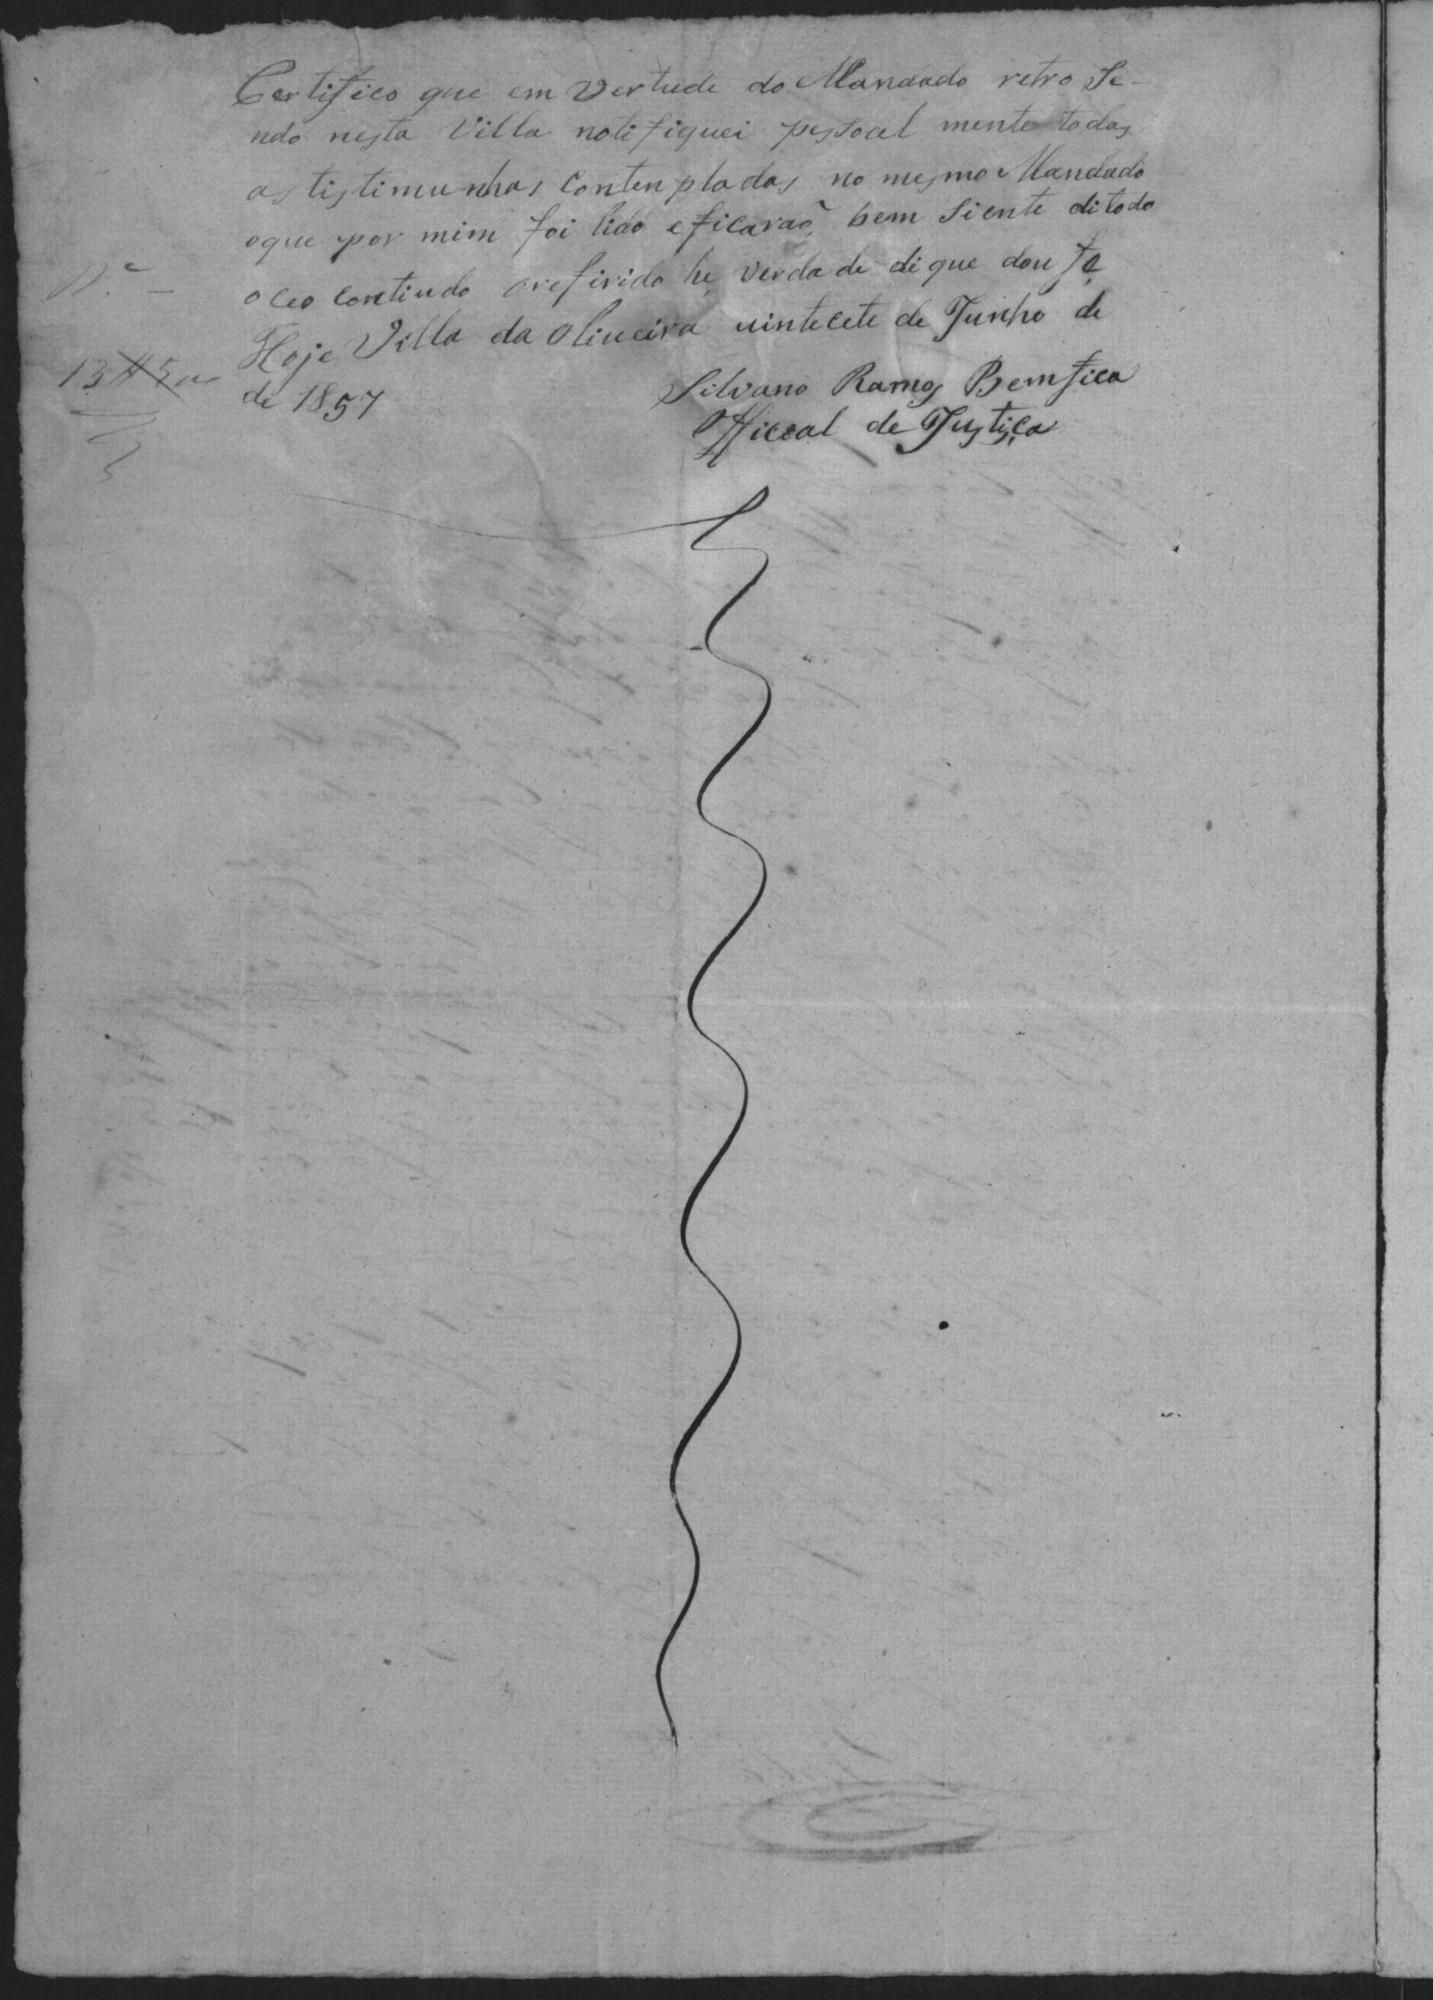 Certifico que em Vertude do Mandado retro Se-
ndo nesta Villa notifiquei pessoal mente todas
as tistimunhas Contenpladas no mesmo Mandado
oque por mim foi lido eficaraõ bem Siente ditodo
oceo contiudo orefirido he verdade dique dou fe
Hoje Villa da Oliveira vintecete de Junho de
de 1857
Silvano Ramos Bemfica
Official de Justiça